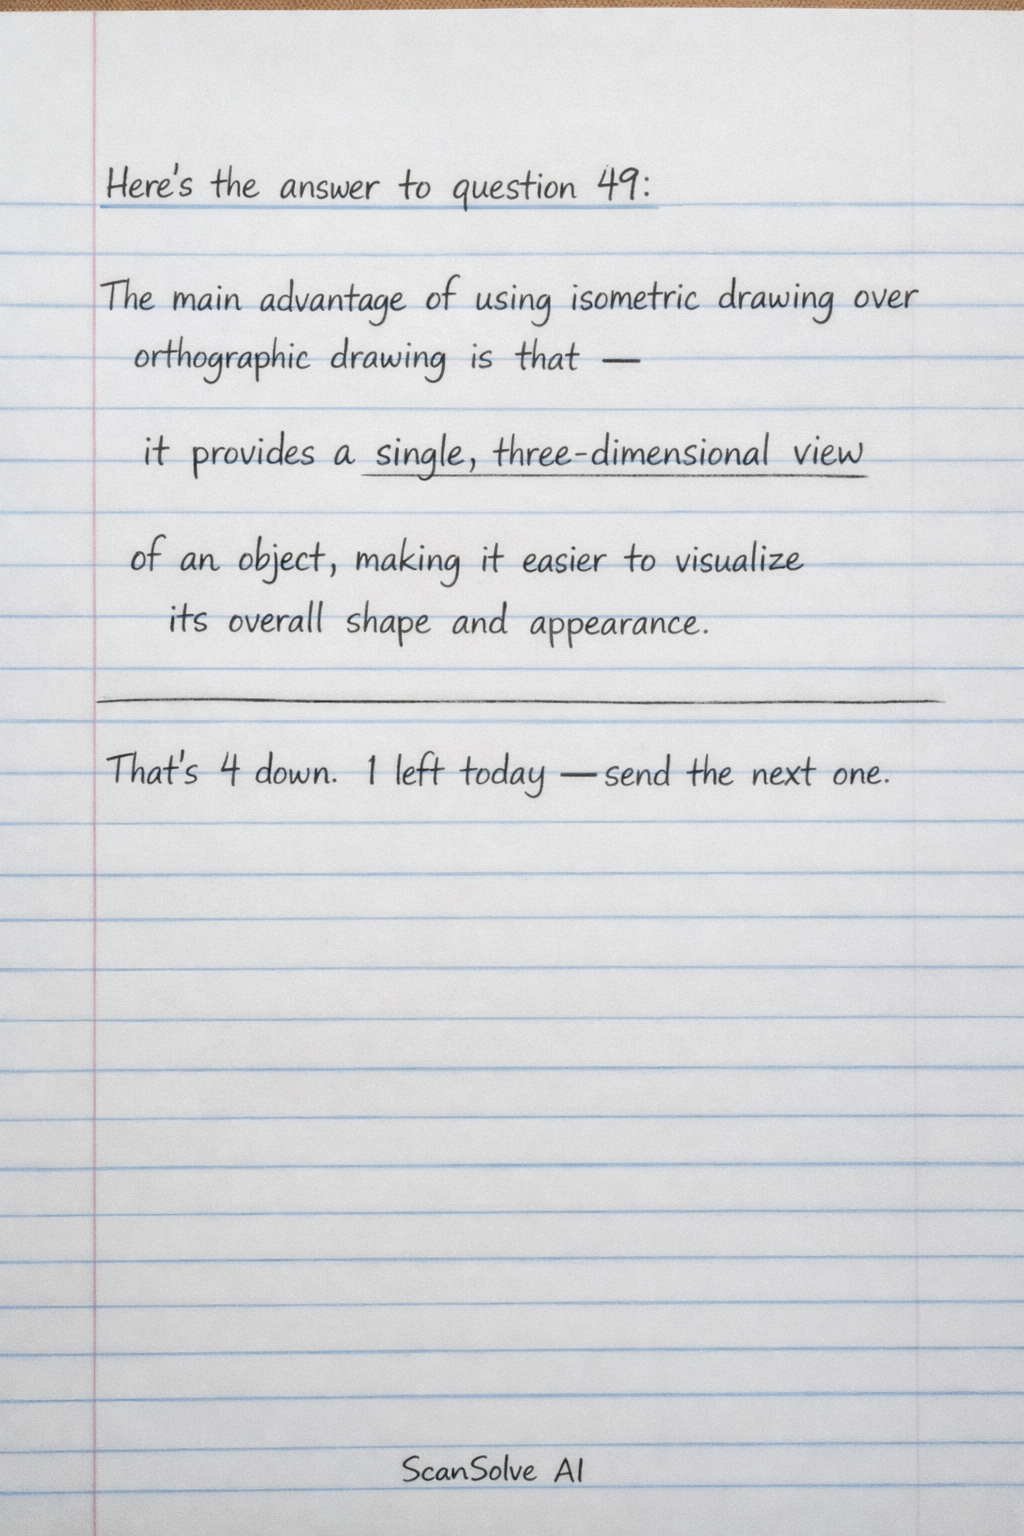 Here's the answer to question 49:
The main advantage of using isometric drawing over
orthographic drawing is that —
it provides a single, three-dimensional view
of an object, making it easier to visualize
its overall shape and appearance.
That's 4 down. 1 left today — send the next one.
ScanSolve AI